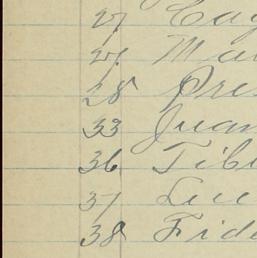 27 Cay
27 Ma
28 Pres
33 Juan
36 Tibu
37 Luc
38 Fide